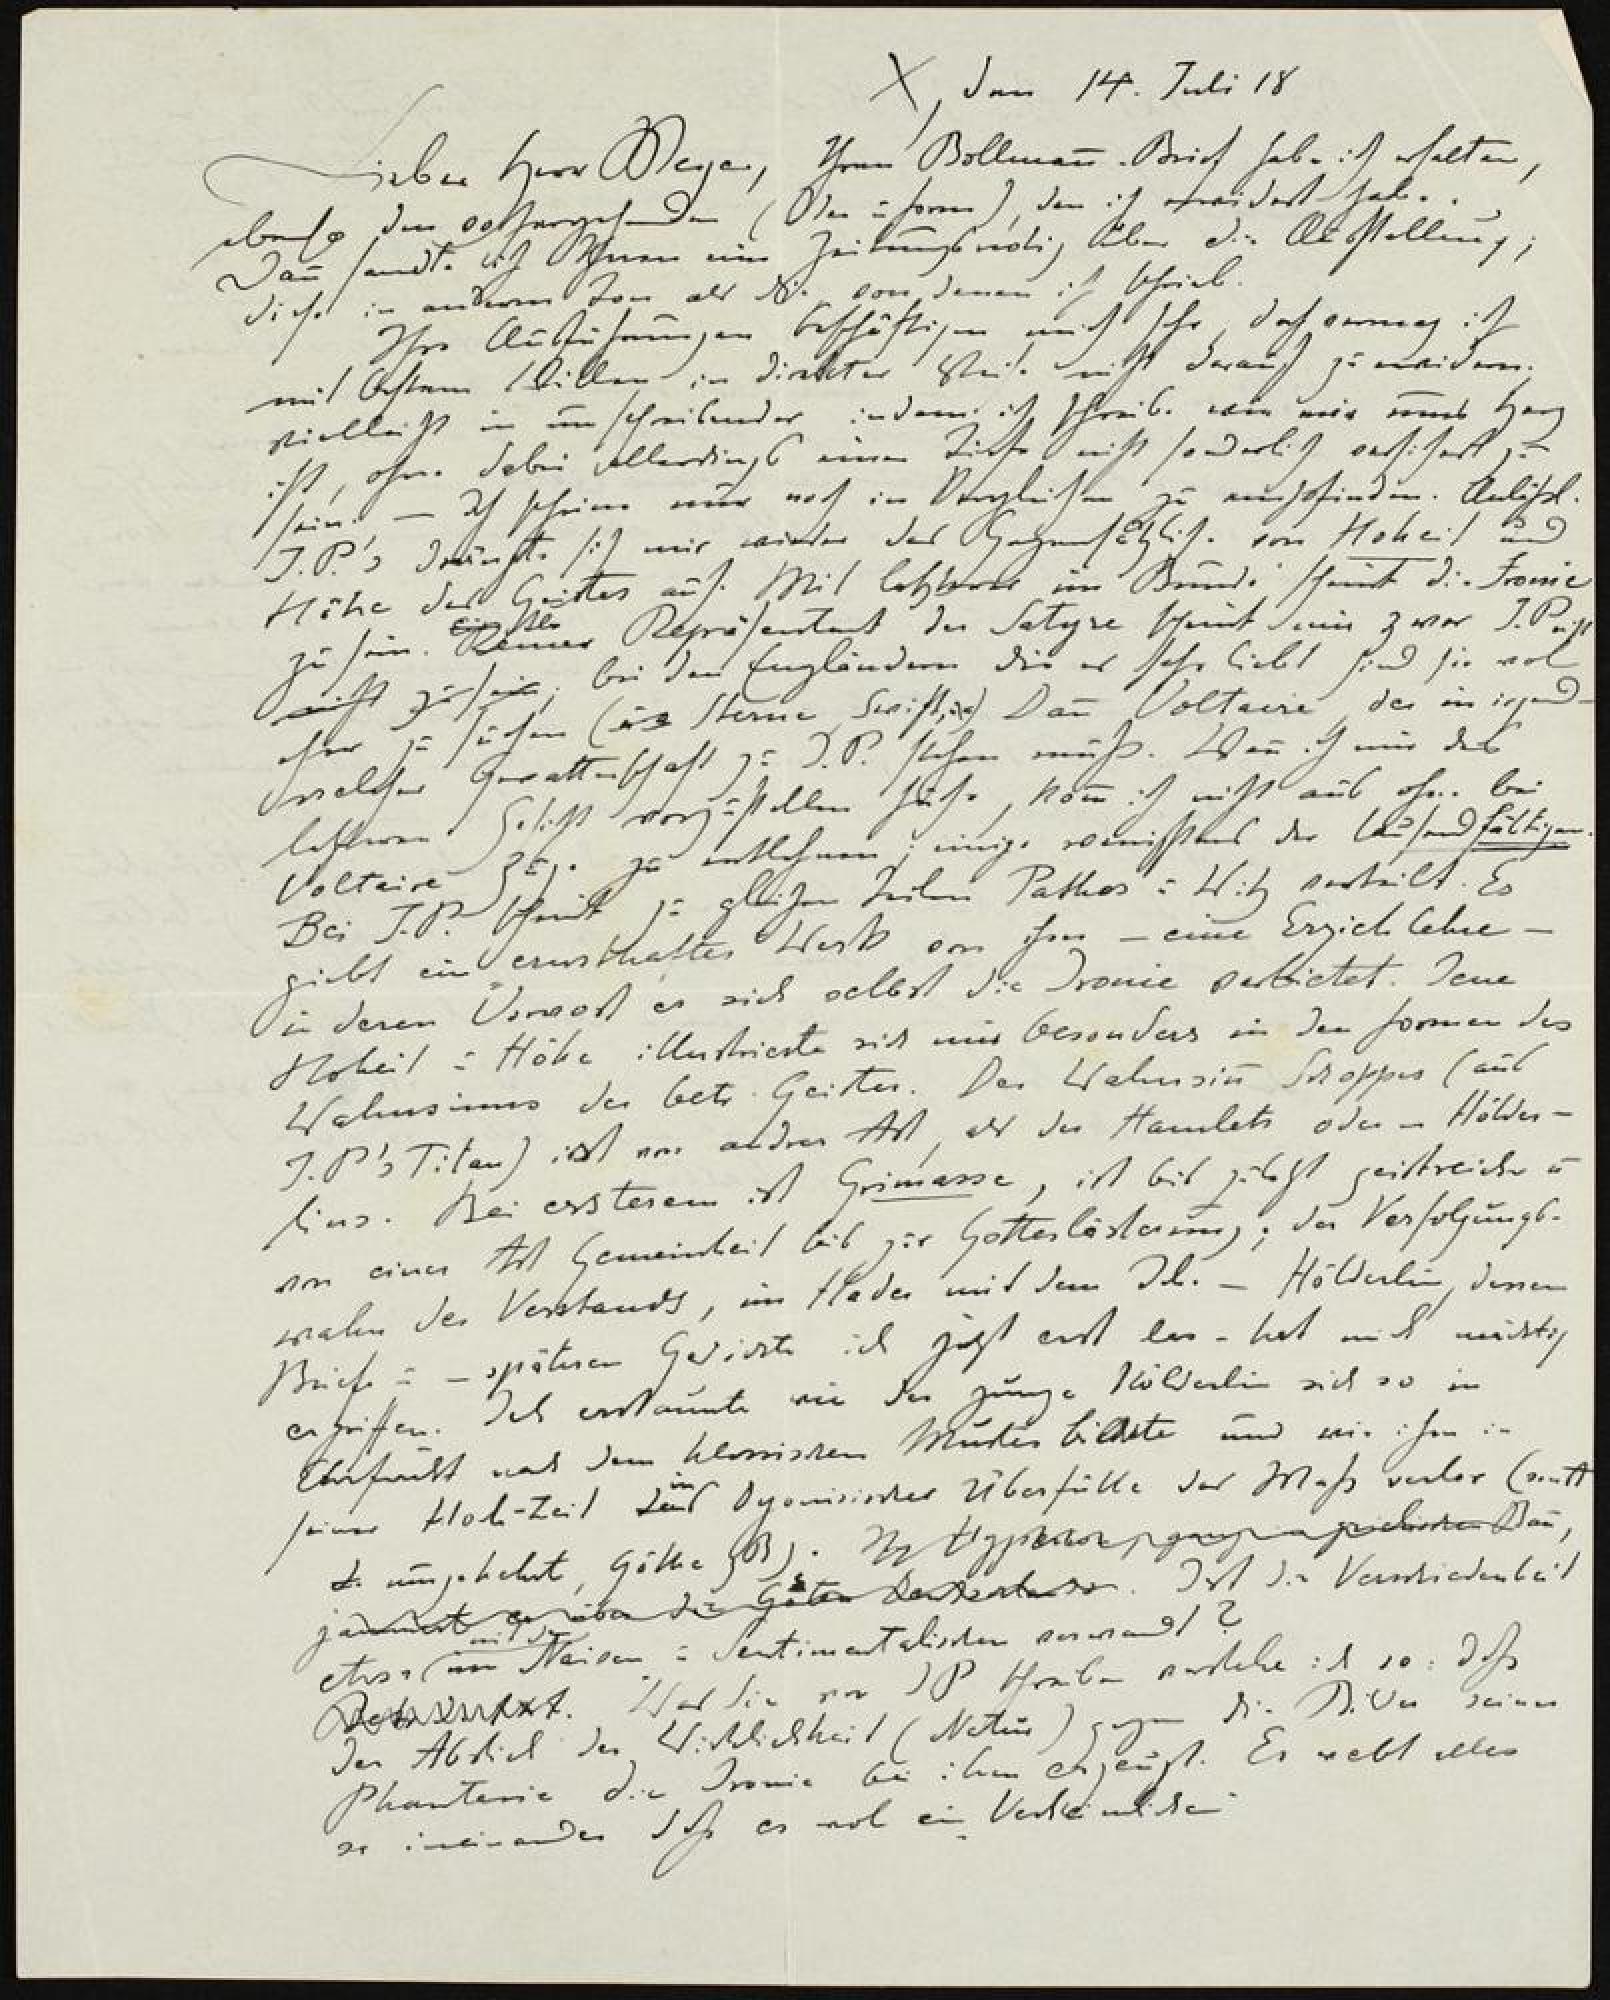 X, den 14. Juli 18
Lieber Herr Meyer, Ihren Bollmann-Brief habe ich erhalten,
ebenso den vorhergehenden (Oder u Form), den ich erwidert habe.
Dan̄ sandte ich Ihnen eine Zeitungsnotiz über die Ausstellung;
diese in anderem Ton als die von denen ich schrieb.
Ihre Ausführungen beschäftigen mich sehr, doch vermag ich
mit bestem Willen in direkter Weise nicht darauf zu erwidern.
vielleicht in umschreibender indem ich schreibe wie mir ums Herz
ist, ohne dabei allerdings einer Tiefe nicht sonderlich versichert zu
sein. — Ich scheine nur noch in Vergleichen zu empfinden. Anlässl.
J.P.'s drängte sich mir wieder das Gegensätzliche von Hoheit und
Höhe des Geistes auf. Mit letzterer im Bunde scheint die Ironie
zu sein. Reiner Repräsentant der Satyre scheint denn zwar J.P. nicht
nicht zu sein; bei den Engländern die er sehr liebt sind sie wol
eher zu suchen (Sterne, Swift,) Dan̄ Voltaire, der in irgend-
welcher Gevatterschaft zu J.P. stehen muss. Wen̄ ich mir des
letzteren Gesicht vorzustellen suche, kom̄ ich nicht aus ohne bei
Voltaire Züge zu entlehnen; einige wenigstens der tausendfältigen.
Bei J.P. scheint zu gleichen Teilen Pathos u Witz verteilt. Es
giebt ein ernsthaftes Werk von ihm — eine Erziehlehre —
in deren Vorwort er sich selbst die Ironie verbietet. Jene
Hoheit u Höhe illustrierte sich mir besonders in den Formen des
Wahnsinns der betr. Geister. Der Wahnsin̄ Schoppes (aus
J.P.'s Titan) ist von andrer Art, als der Hamlets oder — Hölder-
lins. Bei ersterem ist Grimasse, ist bis zuletzt geistreich u
von einer Art Gemeinheit bis zur Gotteslästerung; der Verfolgungs-
wahn des Verstands, im Hader mit dem Ich. — Hölderlin, dessen
Briefe u — späteren Gedichte ich jetzt erst las — hat mich mächtig
ergriffen. Ich erstaunte wie der junge Hölderlin sich so in
Ehrfurcht nach dem klassischen Muster bildete und wie ihm in
seiner Hoch-Zeit in Dyonisischer Überfülle das Maß verlor (statt
umgekehrt, Göthe zB). Im Hyperion Dan̄,
jammert er über die Götter. Ist die Verschiedenheit
etwa mit dem Naiven u Sentimentalischen verwandt?
Was Sie von JP schreiben verstehe ich so: daß
der Abstich der Wirklichkeit (Natur) gegen die Bilder seiner
Phantasie die Ironie bei ihm erzeugt. Es webt alles
so ineinander daß es wol ein